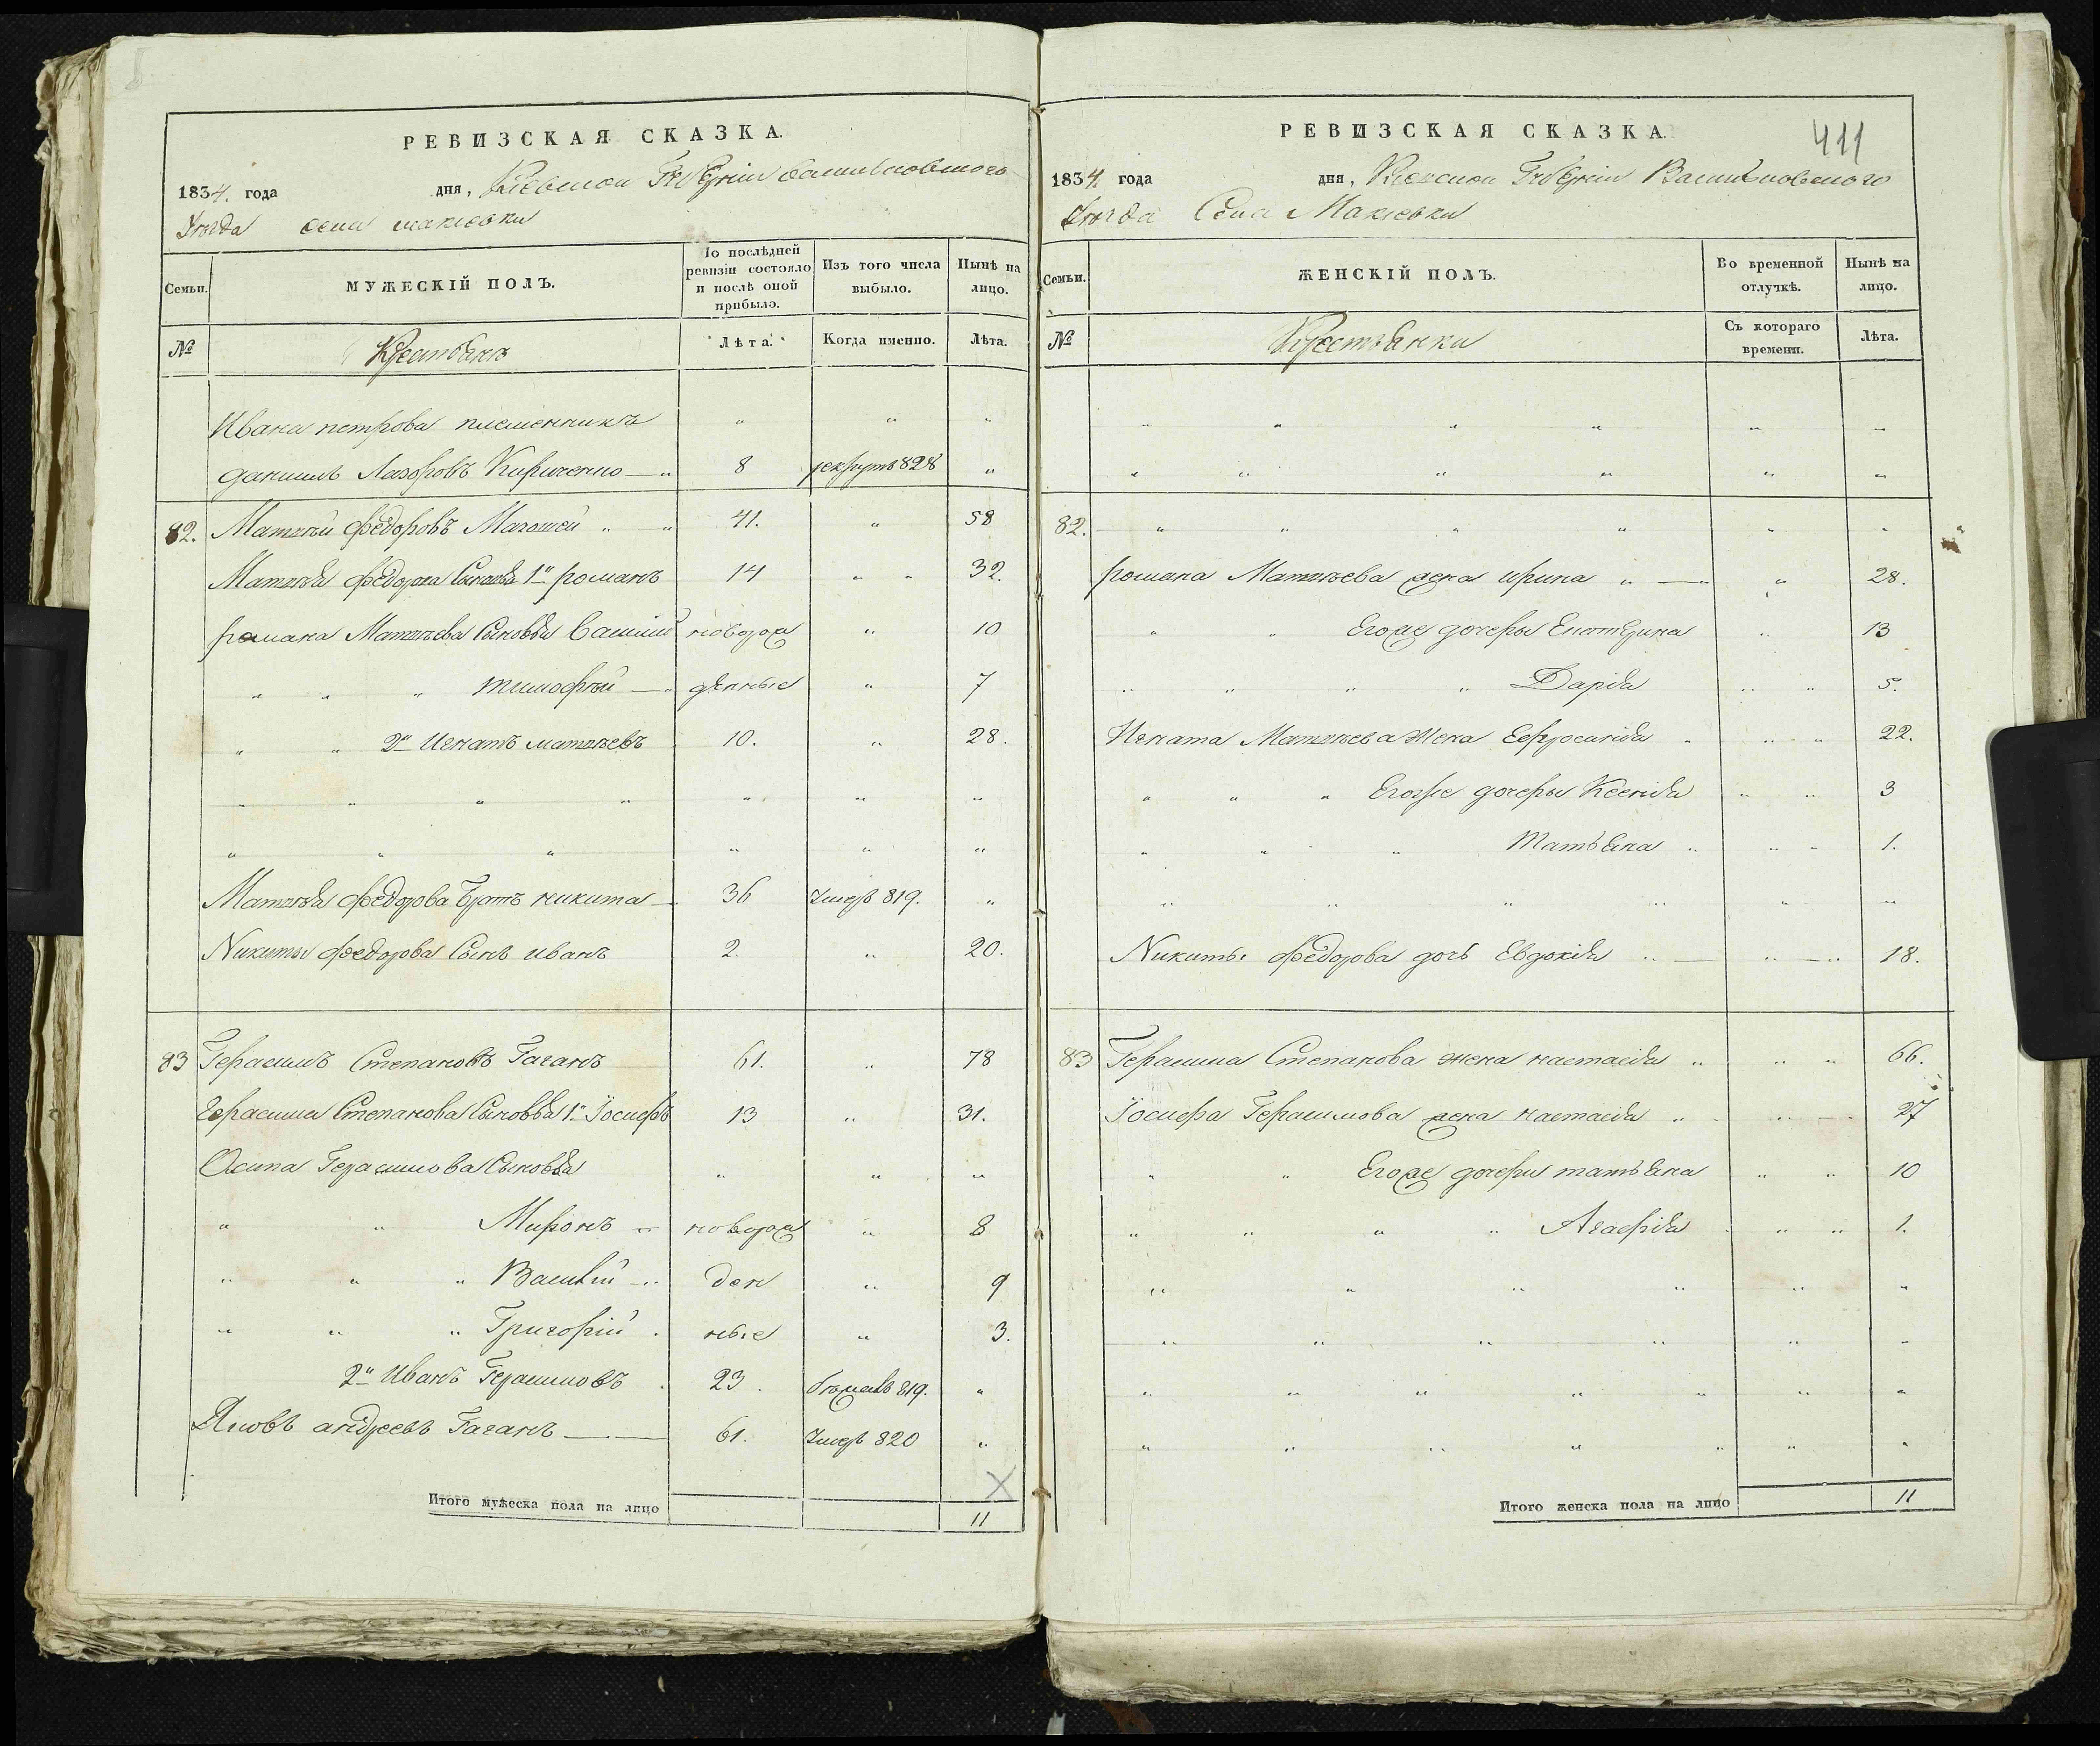 РЕВИЗСКАЯ СКАЗКА.
1834. года дня, Киевской Губернии Васильковского
Уезда села макіевки
Семьи.
МУЖЕСКІЙ ПОЛЪ.
По послѣдней ревизіи состояло и послѣ оной прибыло.
Изъ того числа выбыло.
Нынѣ на лицо.
№
Крестьянъ
Лѣта.
Когда именно.
Лѣта.
Ивана петрова племенникъ " " "
данишль Лазоровъ Кириченко — " 8 рекрутъ 828 "
82. Матвѣй Федоровъ Магомей " — " 41. " 58
Матвѣя Федорова Сыновья 1й романъ 14 " " 32.
романа Матвѣева Сыновья Василий новорож " 10
" " " тимофѣй — " денные " 7
" " 2й Игнатъ матвѣевъ 10. " 28.
" " " " " " "
" " " " " "
Матвѣя Федорова братъ никита 36 Умеръ 819. "
Никиты Федорова Сынъ иванъ 2. " 20.
83 Герасимъ Степановъ Гаганъ 61. " 78
Герасима Степанова Сыновья 1й Іосифъ 13 " 31.
Осипа Герасимова Сыновья " " "
" " Миронъ " новорож " 8
" " " Василій " ден " 9
" " " Григорій . ные " 3.
2й Иванъ Герасимовъ . 23. бежалъ 819. "
Яковъ андреевъ Гаганъ — 61. Умеръ 820 "
Итого мужеска пола на лицо 11
411
РЕВИЗСКАЯ СКАЗКА.
1834. года дня, Киевской Губернии Васильковского
Уезда Села Макіевки
Семьи.
ЖЕНСКІЙ ПОЛЪ.
Во временной отлучкѣ.
Нынѣ на лицо.
№
Крестьянки
Съ котораго времени.
Лѣта.
" " " " " "
" " " " " "
82. " " " " " "
романа Матвѣева жена ирина " — " " 28.
" " Егоже дочеры Екатерина " 13
" " " " Дарія " " 5.
Игната Матвѣева жена Ефросинія " " " 22.
" " " Егоже дочеры Ксенія " " 3
" " " Татьяна " " " 1.
" " " " " "
Никиты Федорова дочь Евдокія " — " — " 18.
83 Герасима Степанова жена настасія " " " 66.
Іосифа Герасимова жена настасія " " — 27
" " Егоже дочери татьяна " " 10
" " " " Агафія " " 1.
" " " " " "
" " " " " "
" " " " " " "
" " " " " " "
Итого женска пола на лицо 11